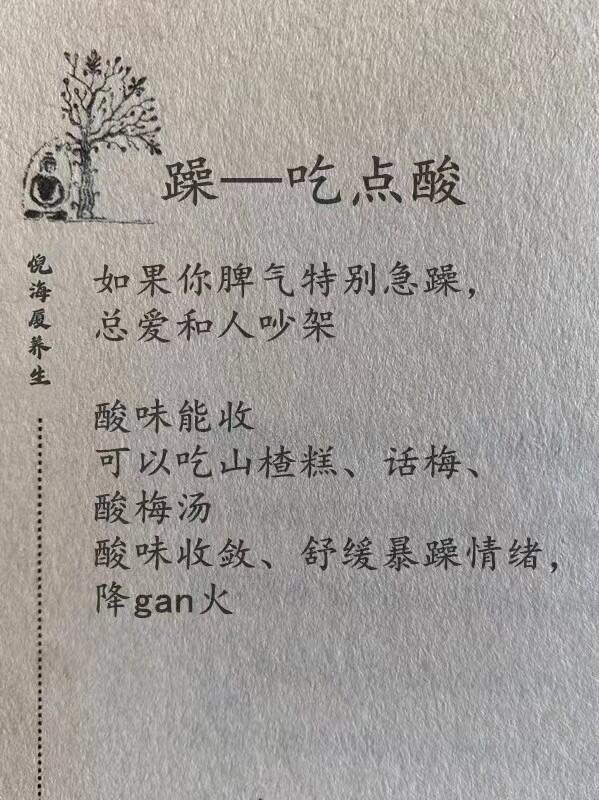 躁—吃点酸
倪海厦养生
如果你脾气特别急躁，
总爱和人吵架
酸味能收
可以吃山楂糕、话梅、
酸梅汤
酸味收敛、舒缓暴躁情绪，
降gan火